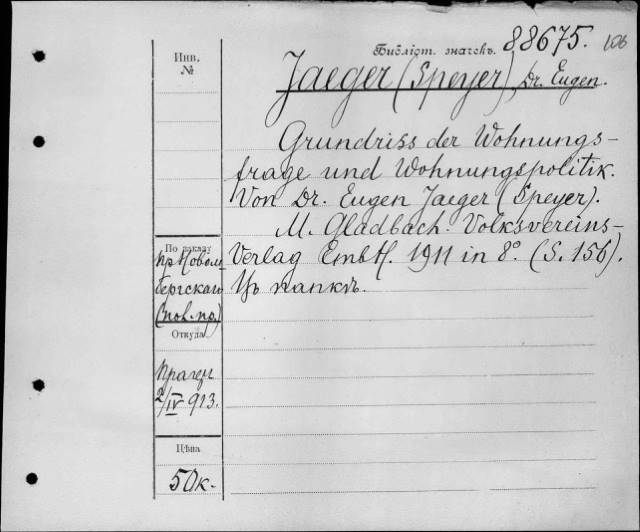 Инв.
№
Библіот. значекъ. 88675. 106
Jaeger (Speyer), Dr. Eugen.
Grundriss der Wohnungs-
frage und Wohnungspolitik.
Von Dr. Eugen Jaeger (Speyer).
M. Gladbach. Volksvereins-
Verlag GmbH. 1911 in 8°. (S. 156).
Цъ папкѣ.
По заказу
пр. Новом
бергскаго
(пов. пр.)
Откуда
Прагеръ
2/IV 913.
Цѣна
50 к.